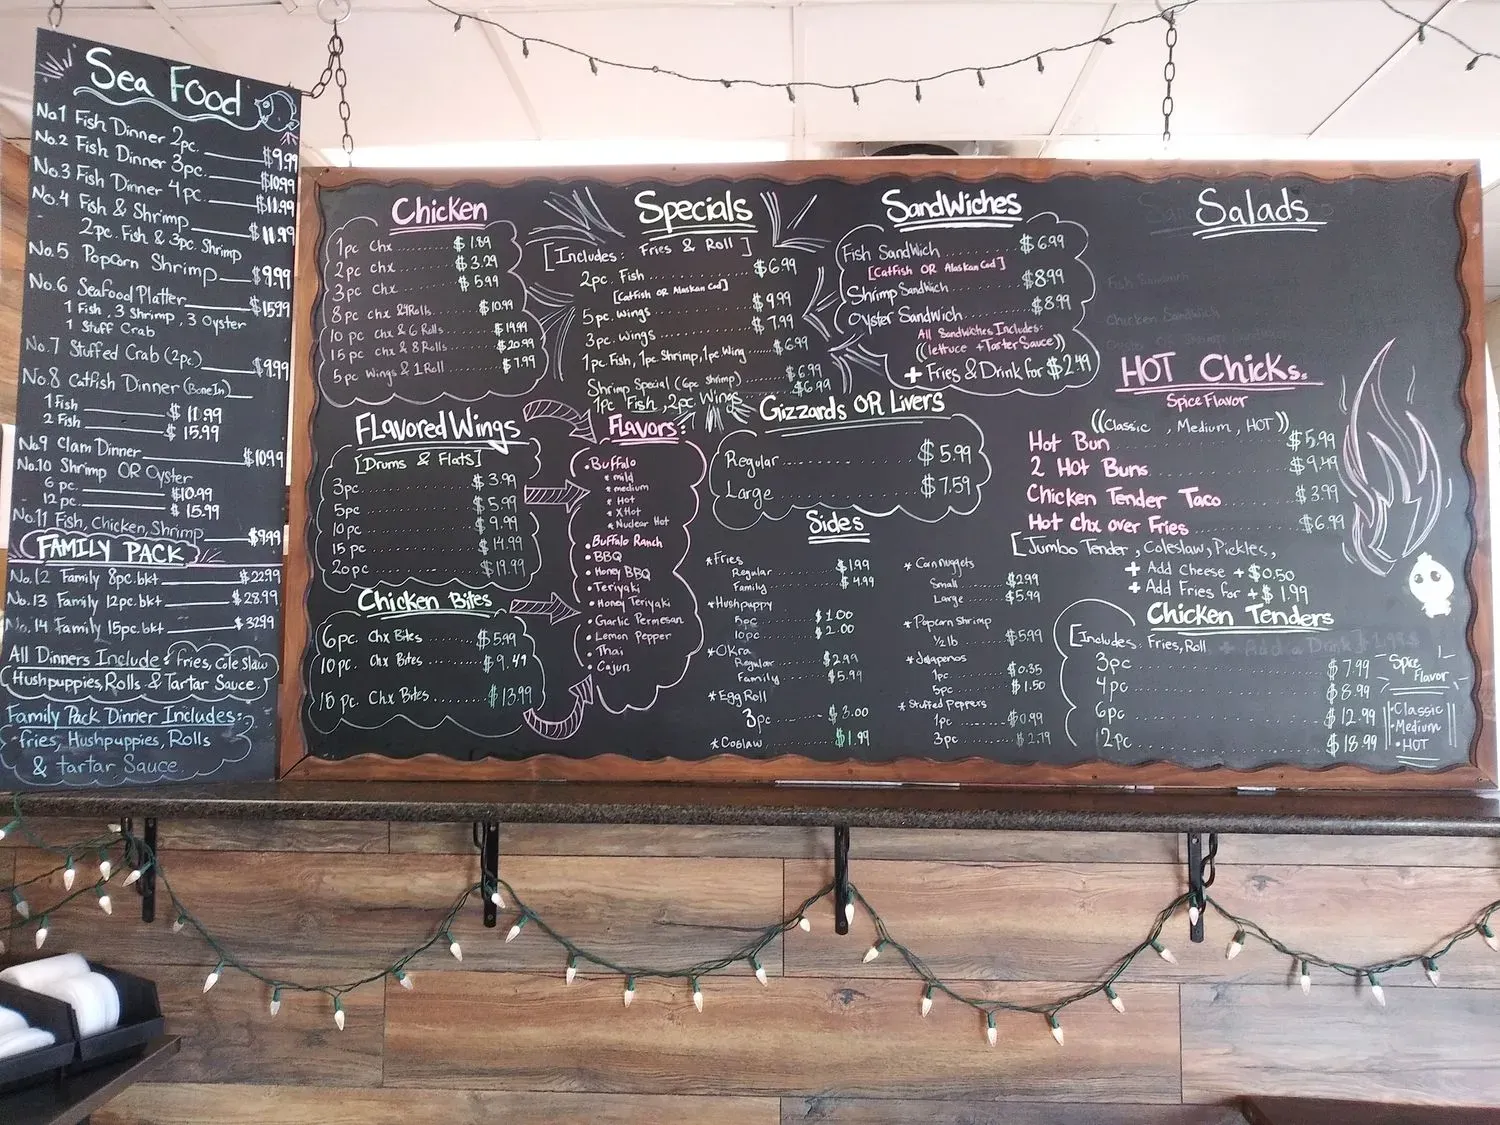 Sea Food
No.1 Fish Dinner 2pc. $9.99
No.2 Fish Dinner 3pc. $10.99
No.3 Fish Dinner 4pc. $11.99
No.4 Fish & Shrimp $11.99
2pc. Fish & 3pc. Shrimp
No.5 Popcorn Shrimp $9.99
No.6 Seafood Platter $15.99
1 Fish, 3 Shrimp, 3 Oyster
1 Stuff Crab
No.7 Stuffed Crab (2pc.) $9.99
No.8 Catfish Dinner (Bone In)
1 Fish $11.99
2 Fish $15.99
No.9 Clam Dinner $10.99
No.10 Shrimp OR Oyster
6 pc. $10.99
12 pc. $15.99
No.11 Fish, Chicken, Shrimp $9.99
FAMILY PACK
No.12 Family 8pc. bkt $22.99
No.13 Family 12pc. bkt $28.99
No.14 Family 15pc. bkt $32.99
All Dinners Include: fries, Cole Slaw
Hushpuppies, Rolls & Tartar Sauce.
Family Pack Dinner Includes:
fries, Hushpuppies, Rolls
& tartar Sauce.
Chicken
1pc chx $1.89
2pc chx $3.29
3pc chx $5.99
8pc chx &4 Rolls $10.99
10 pc chx & 6 Rolls $14.99
15pc chx & 8 Rolls $20.99
5pc Wings & 1 Roll $7.99
Flavored Wings
[Drums & Flats]
3pc $3.99
5pc $5.99
10pc $9.99
15 pc $14.99
20pc $19.99
Chicken Bites
6pc. Chx Bites $5.99
10pc. Chx Bites $9.49
15 pc. Chx Bites $13.99
Specials
[Includes: Fries & Roll]
2pc. Fish $6.99
[Catfish OR Alaskan Cod]
5pc. Wings $9.99
3pc. Wings $7.99
1pc. Fish, 1pc. Shrimp, 1pc. Wing $6.99
Shrimp Special (6pc shrimp) $6.99
1pc Fish, 2pc Wings $6.99
Flavors:
• Buffalo
* mild
* medium
* Hot
* XHot
* Nuclear Hot
• Buffalo Ranch
• BBQ
• Honey BBQ
• Teriyaki
• Honey Teriyaki
• Garlic Permesan
• Lemon Pepper
• Thai
• Cajun
Sandwiches
Fish Sandwich $6.99
[Catfish OR Alaskan Cod]
Shrimp Sandwich $8.99
Oyster Sandwich $8.99
All Sandwiches Includes:
((lettuce + Tarter Sauce))
+ Fries & Drink for $2.49
Gizzards OR Livers
Regular $5.99
Large $7.59
Sides
* Fries
Regular $1.99
Family $4.99
* Hushpuppy
5pc $1.00
10pc $2.00
* OKra
Regular $2.99
Family $5.99
* Egg Roll
3pc $3.00
* Coslaw $1.99
* Corn nuggets
Small $2.99
Large $5.99
* Popcorn Shrimp
1/2 lb $5.99
* Jalapenos
1pc $0.35
5pc $1.50
* Stuffed Peppers
1pc $0.99
3pc $2.79
Salads
HOT Chicks.
Spice Flavor
((Classic, Medium, HOT))
Hot Bun $5.99
2 Hot Buns $9.49
Chicken Tender Taco $3.99
Hot chx over Fries $6.99
[Jumbo Tender, Coleslaw, Pickles,
+ Add Cheese + $0.50
+ Add Fries for + $1.99
Chicken Tenders
[Includes: Fries, Roll + Add a Drink]
3pc $7.99
4pc $8.99
6pc $12.99
12pc $18.99
Spice
Flavor
• Classic
• Medium
• HOT